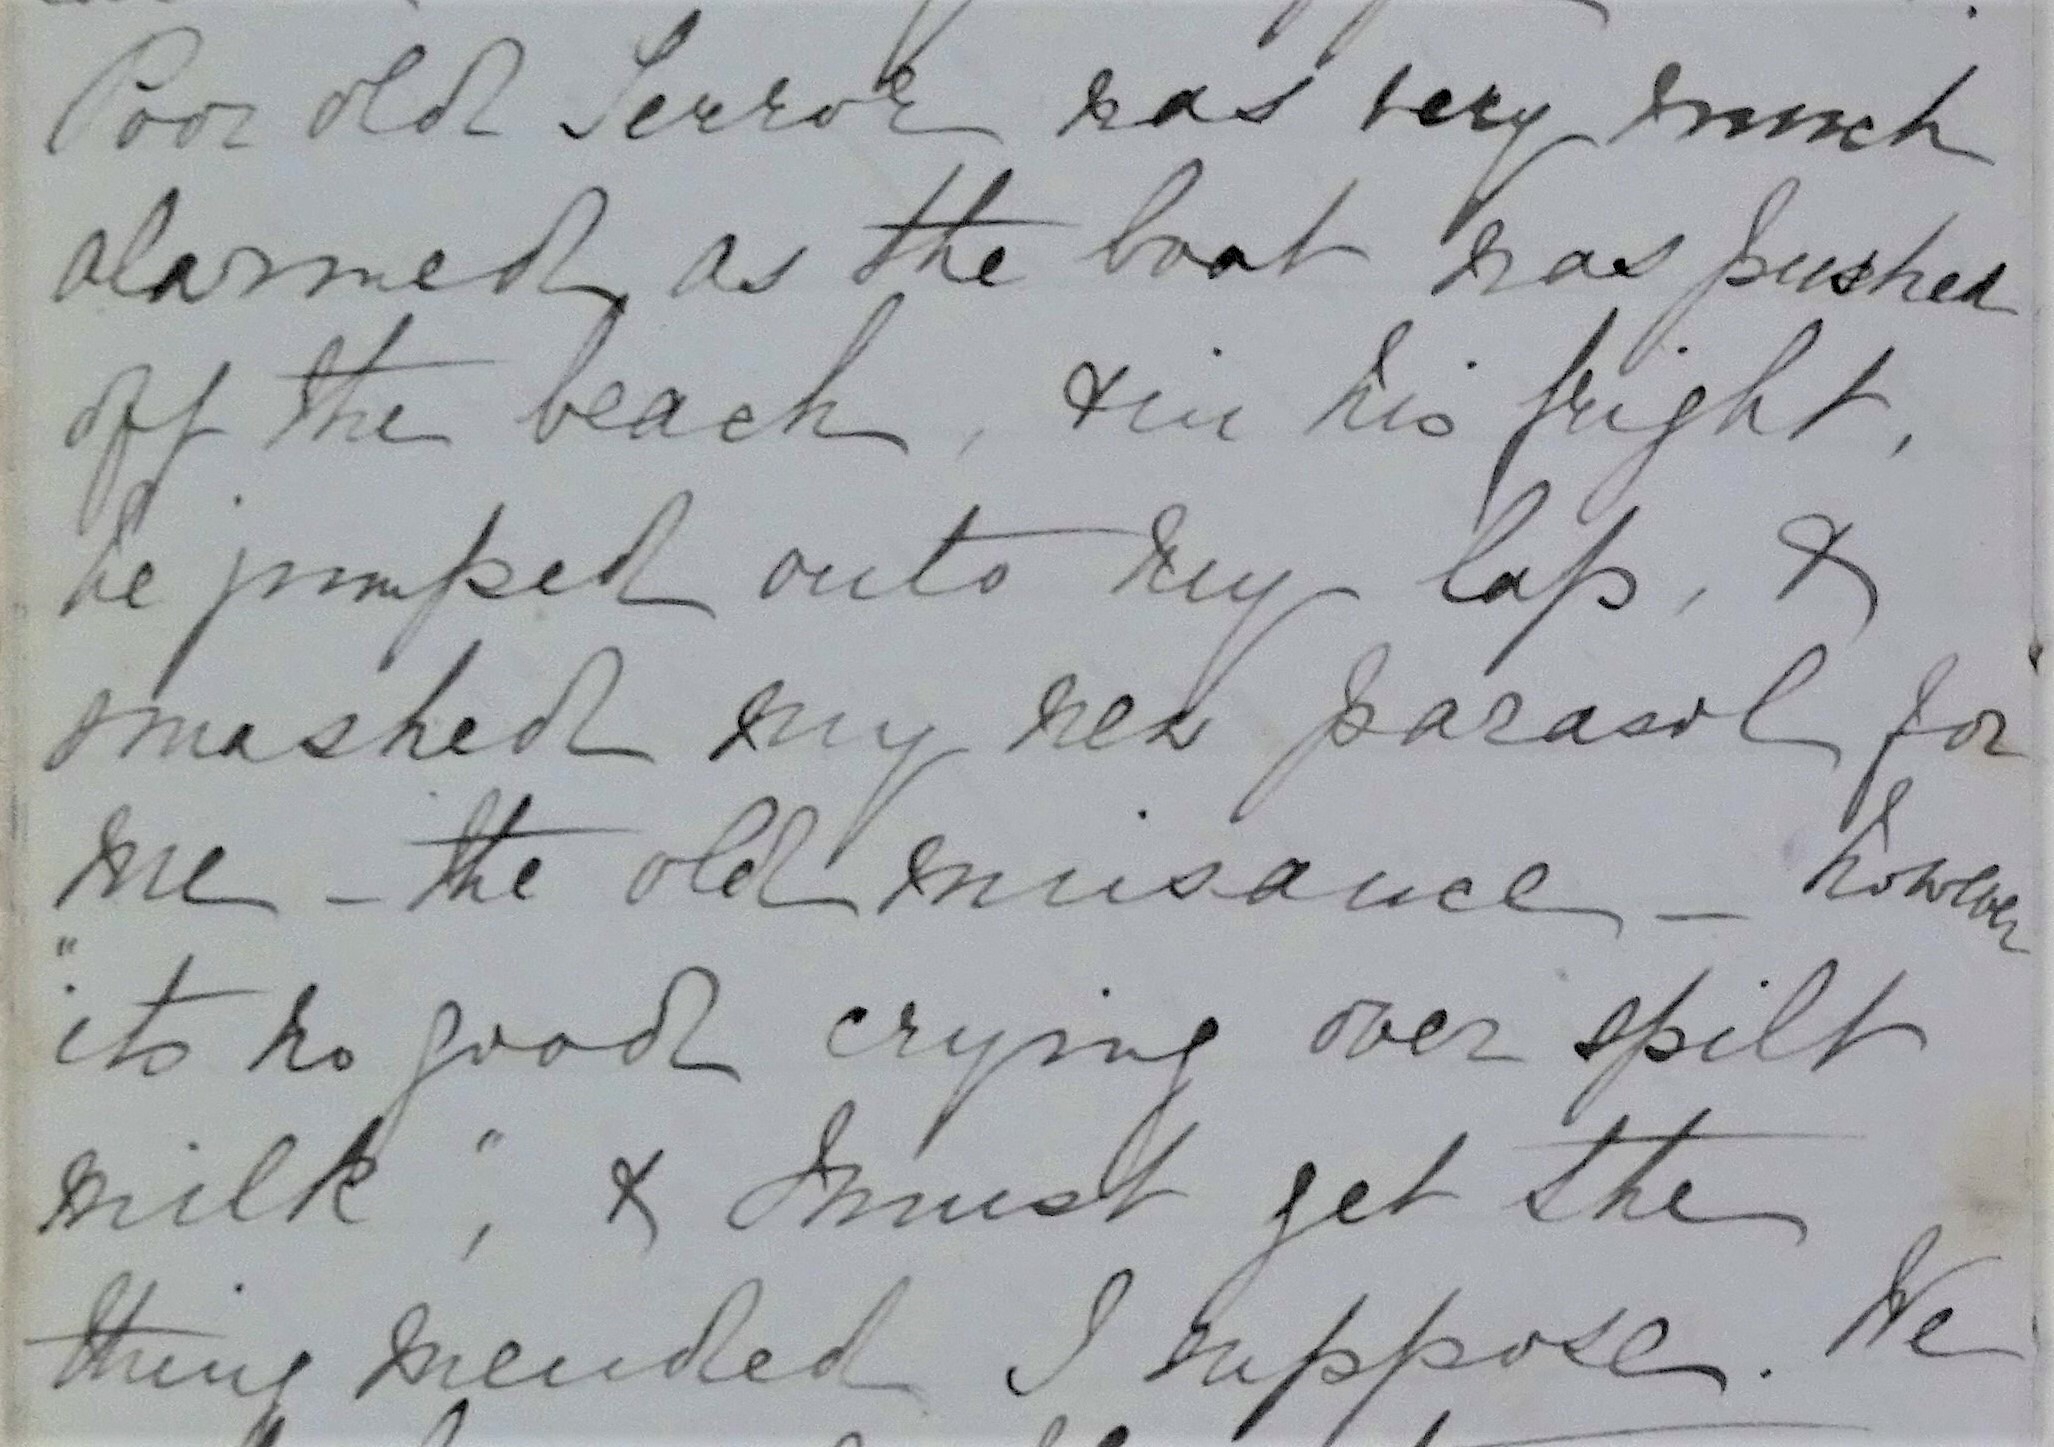 Poor old Terror was very much
alarmed, as the boat was pushed
off the beach, & in his fright,
he jumped onto my lap, &
smashed my new parasol for
me – the old nuisance – however
"its no good crying over spilt
milk", & I must get the
thing mended I suppose. We